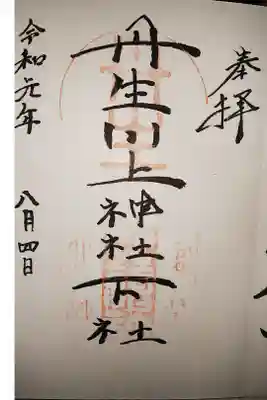 奉拝
丹生川上神社下社
令和元年 八月四日